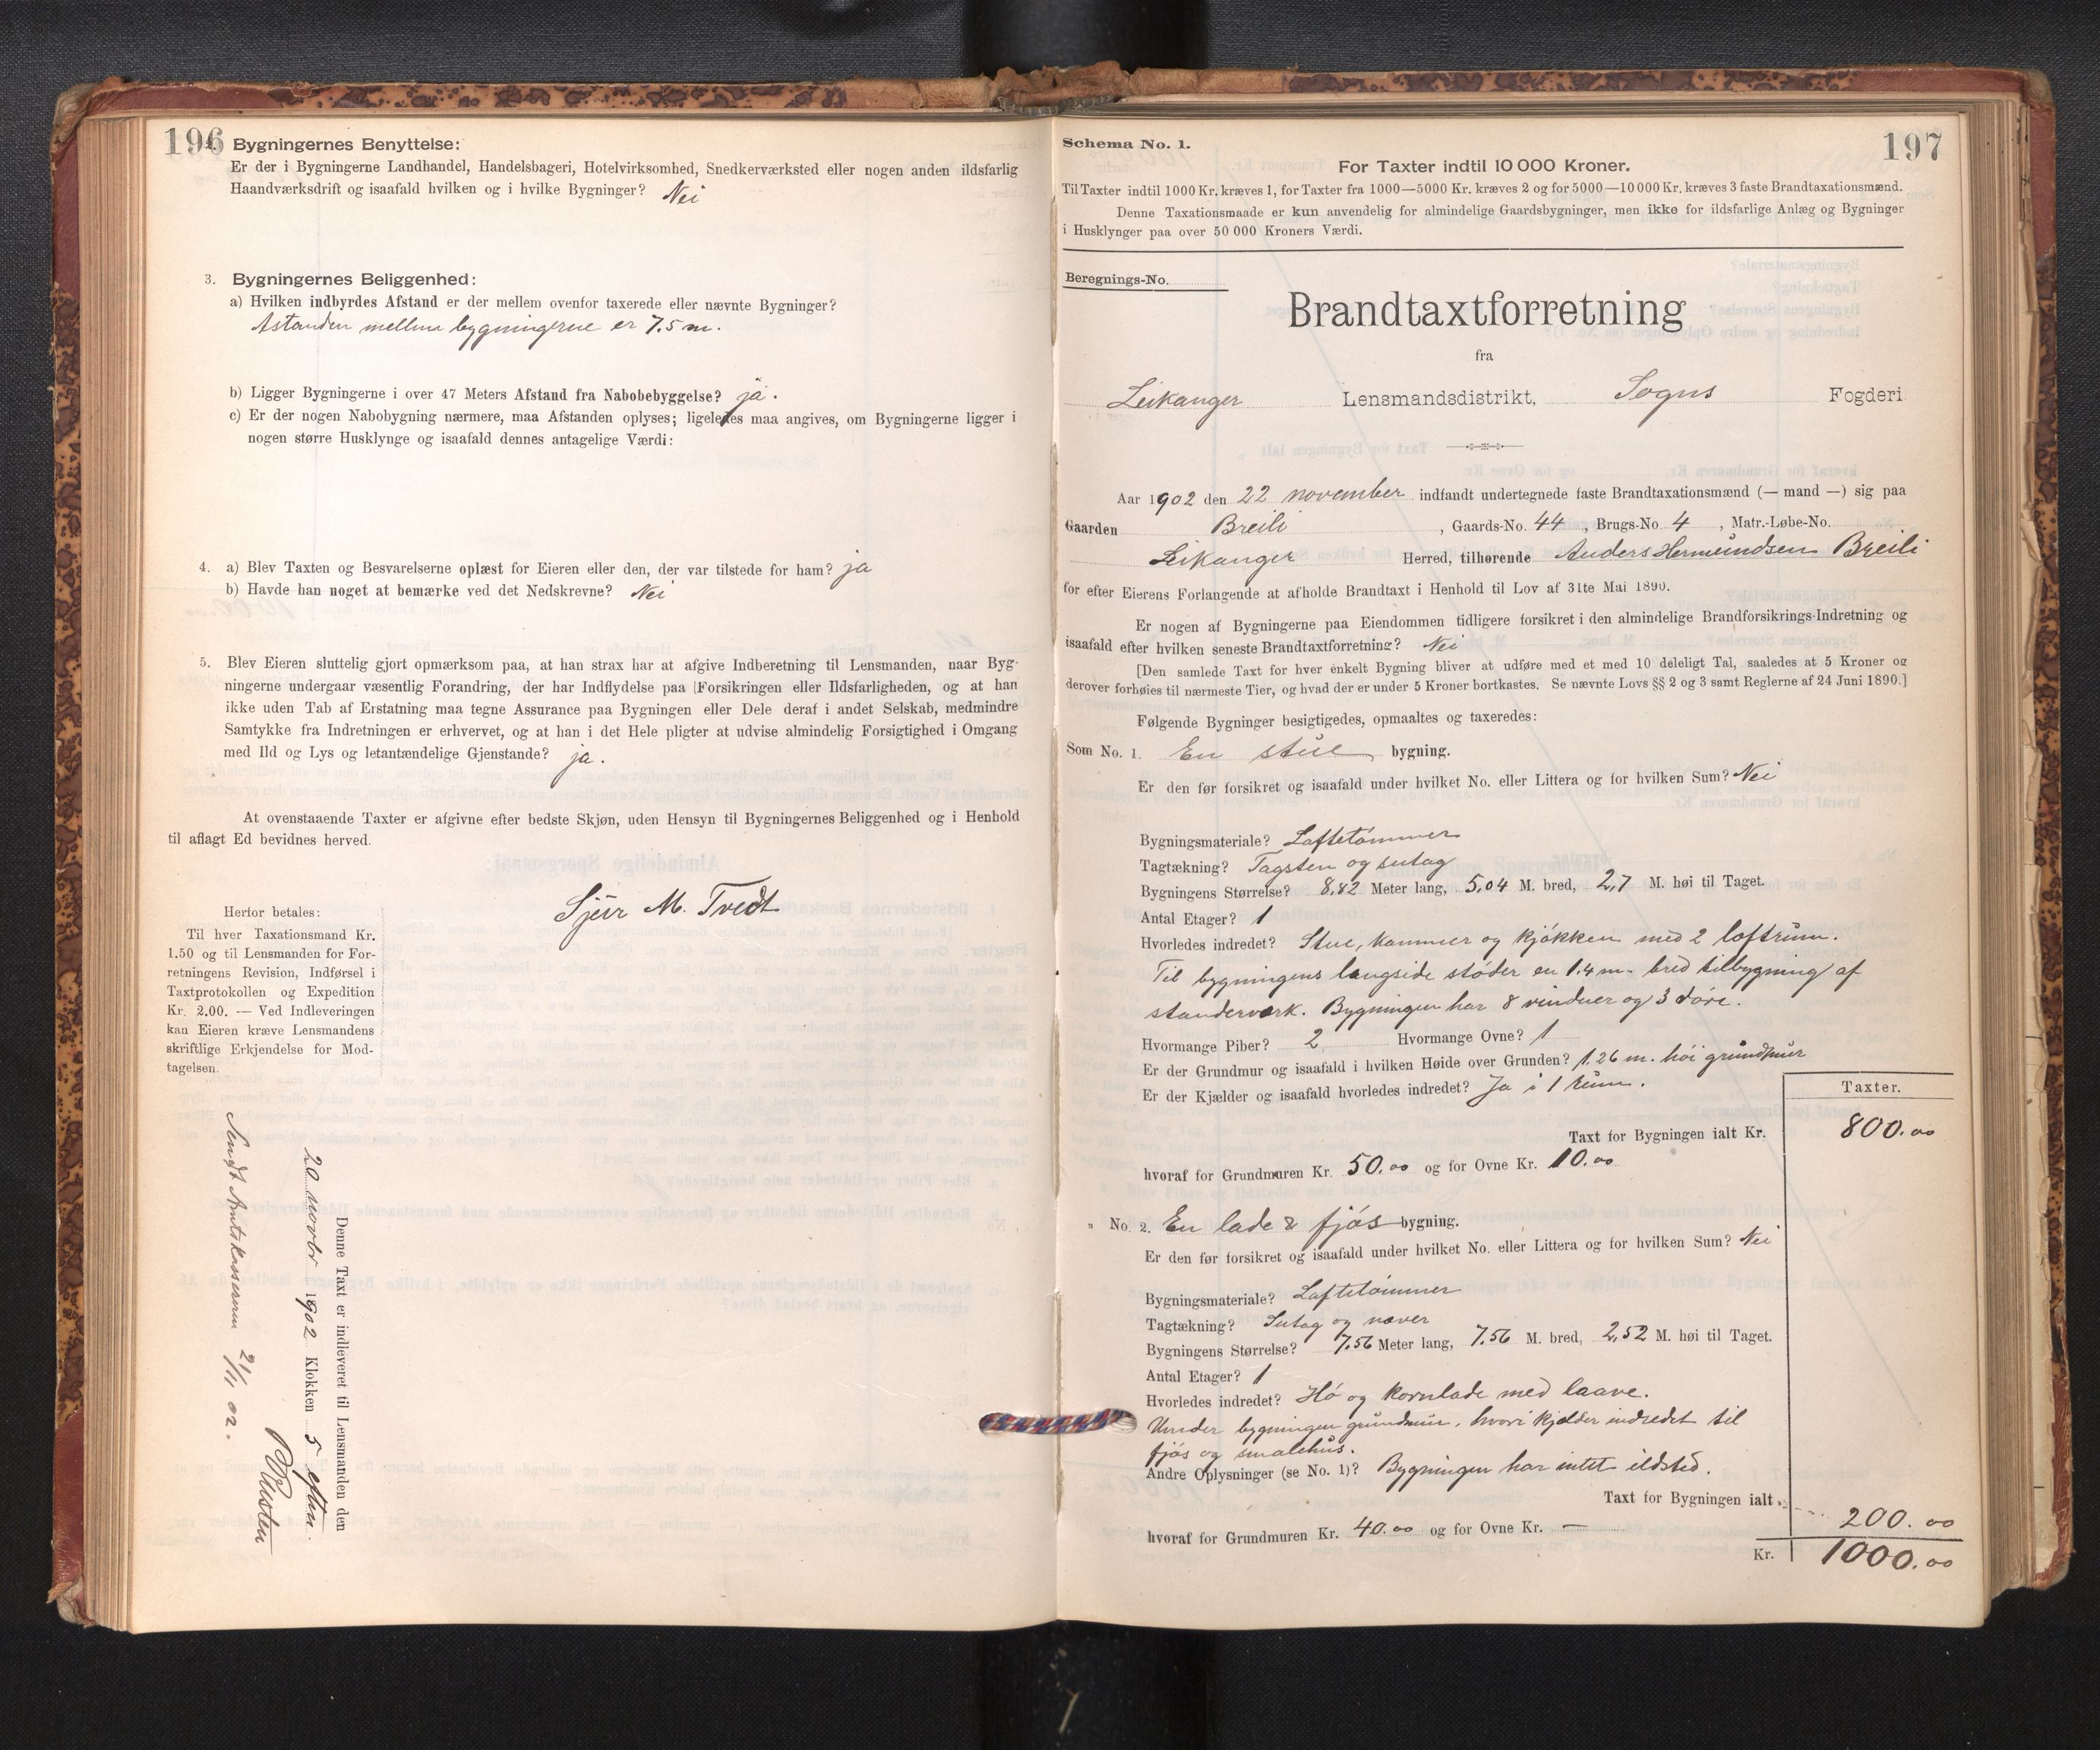 196
Bygningernes Benyttelse:
Er der i Bygningerne Landhandel, Handelsbageri, Hotelvirksomhed, Snedkerværksted eller nogen anden ildsfarlig
Haandværksdrift og isaafald hvilken og i hvilke Bygninger? Nei
3. Bygningernes Beliggenhed:
a) Hvilken indbyrdes Afstand er der mellem ovenfor taxerede eller nævnte Bygninger?
Astanden mellem bygningerne er 7.5 m.
b) Ligger Bygningerne i over 47 Meters Afstand fra Nabobebyggelse? ja.
c) Er der nogen Nabobygning nærmere, maa Afstanden oplyses; ligeledes maa angives, om Bygningerne ligger i
nogen større Husklynge og isaafald dennes antagelige Værdi:
4. a) Blev Taxten og Besvarelserne oplæst for Eieren eller den, der var tilstede for ham? ja
b) Havde han noget at bemærke ved det Nedskrevne? Nei
5. Blev Eieren sluttelig gjort opmærksom paa, at han strax har at afgive Indberetning til Lensmanden, naar Byg-
ningerne undergaar væsentlig Forandring, der har Indflydelse paa Forsikringen eller Ildsfarligheden, og at han
ikke uden Tab af Erstatning maa tegne Assurance paa Bygningen eller Dele deraf i andet Selskab, medmindre
Samtykke fra Indretningen er erhvervet, og at han i det Hele pligter at udvise almindelig Forsigtighed i Omgang
med Ild og Lys og letantændelige Gjenstande? ja.
At ovenstaaende Taxter er afgivne efter bedste Skjøn, uden Hensyn til Bygningernes Beliggenhed og i Henhold
til aflagt Ed bevidnes herved.
Sjur M. Tvedt
Herfor betales:
Til hver Taxationsmand Kr.
1.50 og til Lensmanden for For-
retningens Revision, Indførsel i
Taxtprotokollen og Expedition
Kr. 2.00. — Ved Indleveringen
kan Eieren kræve Lensmandens
skriftlige Erkjendelse for Mod-
tagelsen.
Denne Taxt er indleveret til Lensmanden den
20 novbr 1902 Klokken 5 eftm.
Sendt Amtskassereren 21/11 02.
197
Schema No. 1.
For Taxter indtil 10 000 Kroner.
Til Taxter indtil 1000 Kr. kræves 1, for Taxter fra 1000—5000 Kr. kræves 2 og for 5000—10 000 Kr. kræves 3 faste Brandtaxationsmænd.
Denne Taxationsmaade er kun anvendelig for almindelige Gaardsbygninger, men ikke for ildsfarlige Anlæg og Bygninger
i Husklynger paa over 50 000 Kroners Værdi.
Beregnings-No.
Brandtaxtforretning
fra
Leikanger Lensmandsdistrikt, Sogns Fogderi
Aar 1902 den 22 november indfandt undertegnede faste Brandtaxationsmænd (— mand —) sig paa
Gaarden Breili, Gaards-No. 44, Brugs-No. 4, Matr.-Løbe-No.
Leikanger Herred, tilhørende Anders Hermundsen Breili
for efter Eierens Forlangende at afholde Brandtaxt i Henhold til Lov af 31te Mai 1890.
Er nogen af Bygningerne paa Eiendommen tidligere forsikret i den almindelige Brandforsikrings-Indretning og
isaafald efter hvilken seneste Brandtaxtforretning? Nei
[Den samlede Taxt for hver enkelt Bygning bliver at udføre med et med 10 deleligt Tal, saaledes at 5 Kroner og
derover forhøies til nærmeste Tier, og hvad der er under 5 Kroner bortkastes. Se nævnte Lovs §§ 2 og 3 samt Reglerne af 24 Juni 1890.]
Følgende Bygninger besigtigedes, opmaaltes og taxeredes:
Som No. 1. En stue bygning.
Er den før forsikret og isaafald under hvilket No. eller Littera og for hvilken Sum? Nei
Bygningsmateriale? Laftetømmer
Tagtækning? Tagsten og sutag
Bygningens Størrelse? 8,82 Meter lang, 5,04 M. bred, 2,7 M. høi til Taget.
Antal Etager? 1
Hvorledes indredet? Stue, kammer og kjøkken med 2 loftrum.
Til bygningens langside støder en 1.4 m. bred tilbygning af
standerverk. Bygningen har 8 vinduer og 3 døre.
Hvormange Piber? 2 Hvormange Ovne? 1
Er der Grundmur og isaafald i hvilken Høide over Grunden? 1.26 m. høi grundmur
Er der Kjælder og isaafald hvorledes indredet? Ja i 1 rum.
Taxter.
Taxt for Bygningen ialt Kr. 800.00
hvoraf for Grundmuren Kr. 50.00 og for Ovne Kr. 10.00
" No. 2. En lade & fjøs bygning.
Er den før forsikret og isaafald under hvilket No. eller Littera og for hvilken Sum? Nei
Bygningsmateriale? Laftetømmer
Tagtækning? Sutag og næver
Bygningens Størrelse? 7.56 Meter lang, 7.56 M. bred, 2,52 M. høi til Taget.
Antal Etager? 1
Hvorledes indredet? Hø og kornlade med laave.
Under bygningen grundmur, hvori kjelder indredet til
fjøs og smalehus.
Andre Oplysninger (se No. 1)? Bygningen har intet ildsted.
Taxt for Bygningen ialt 200.00
hvoraf for Grundmuren Kr. 40.00 og for Ovne Kr. —
Kr. 1000.00